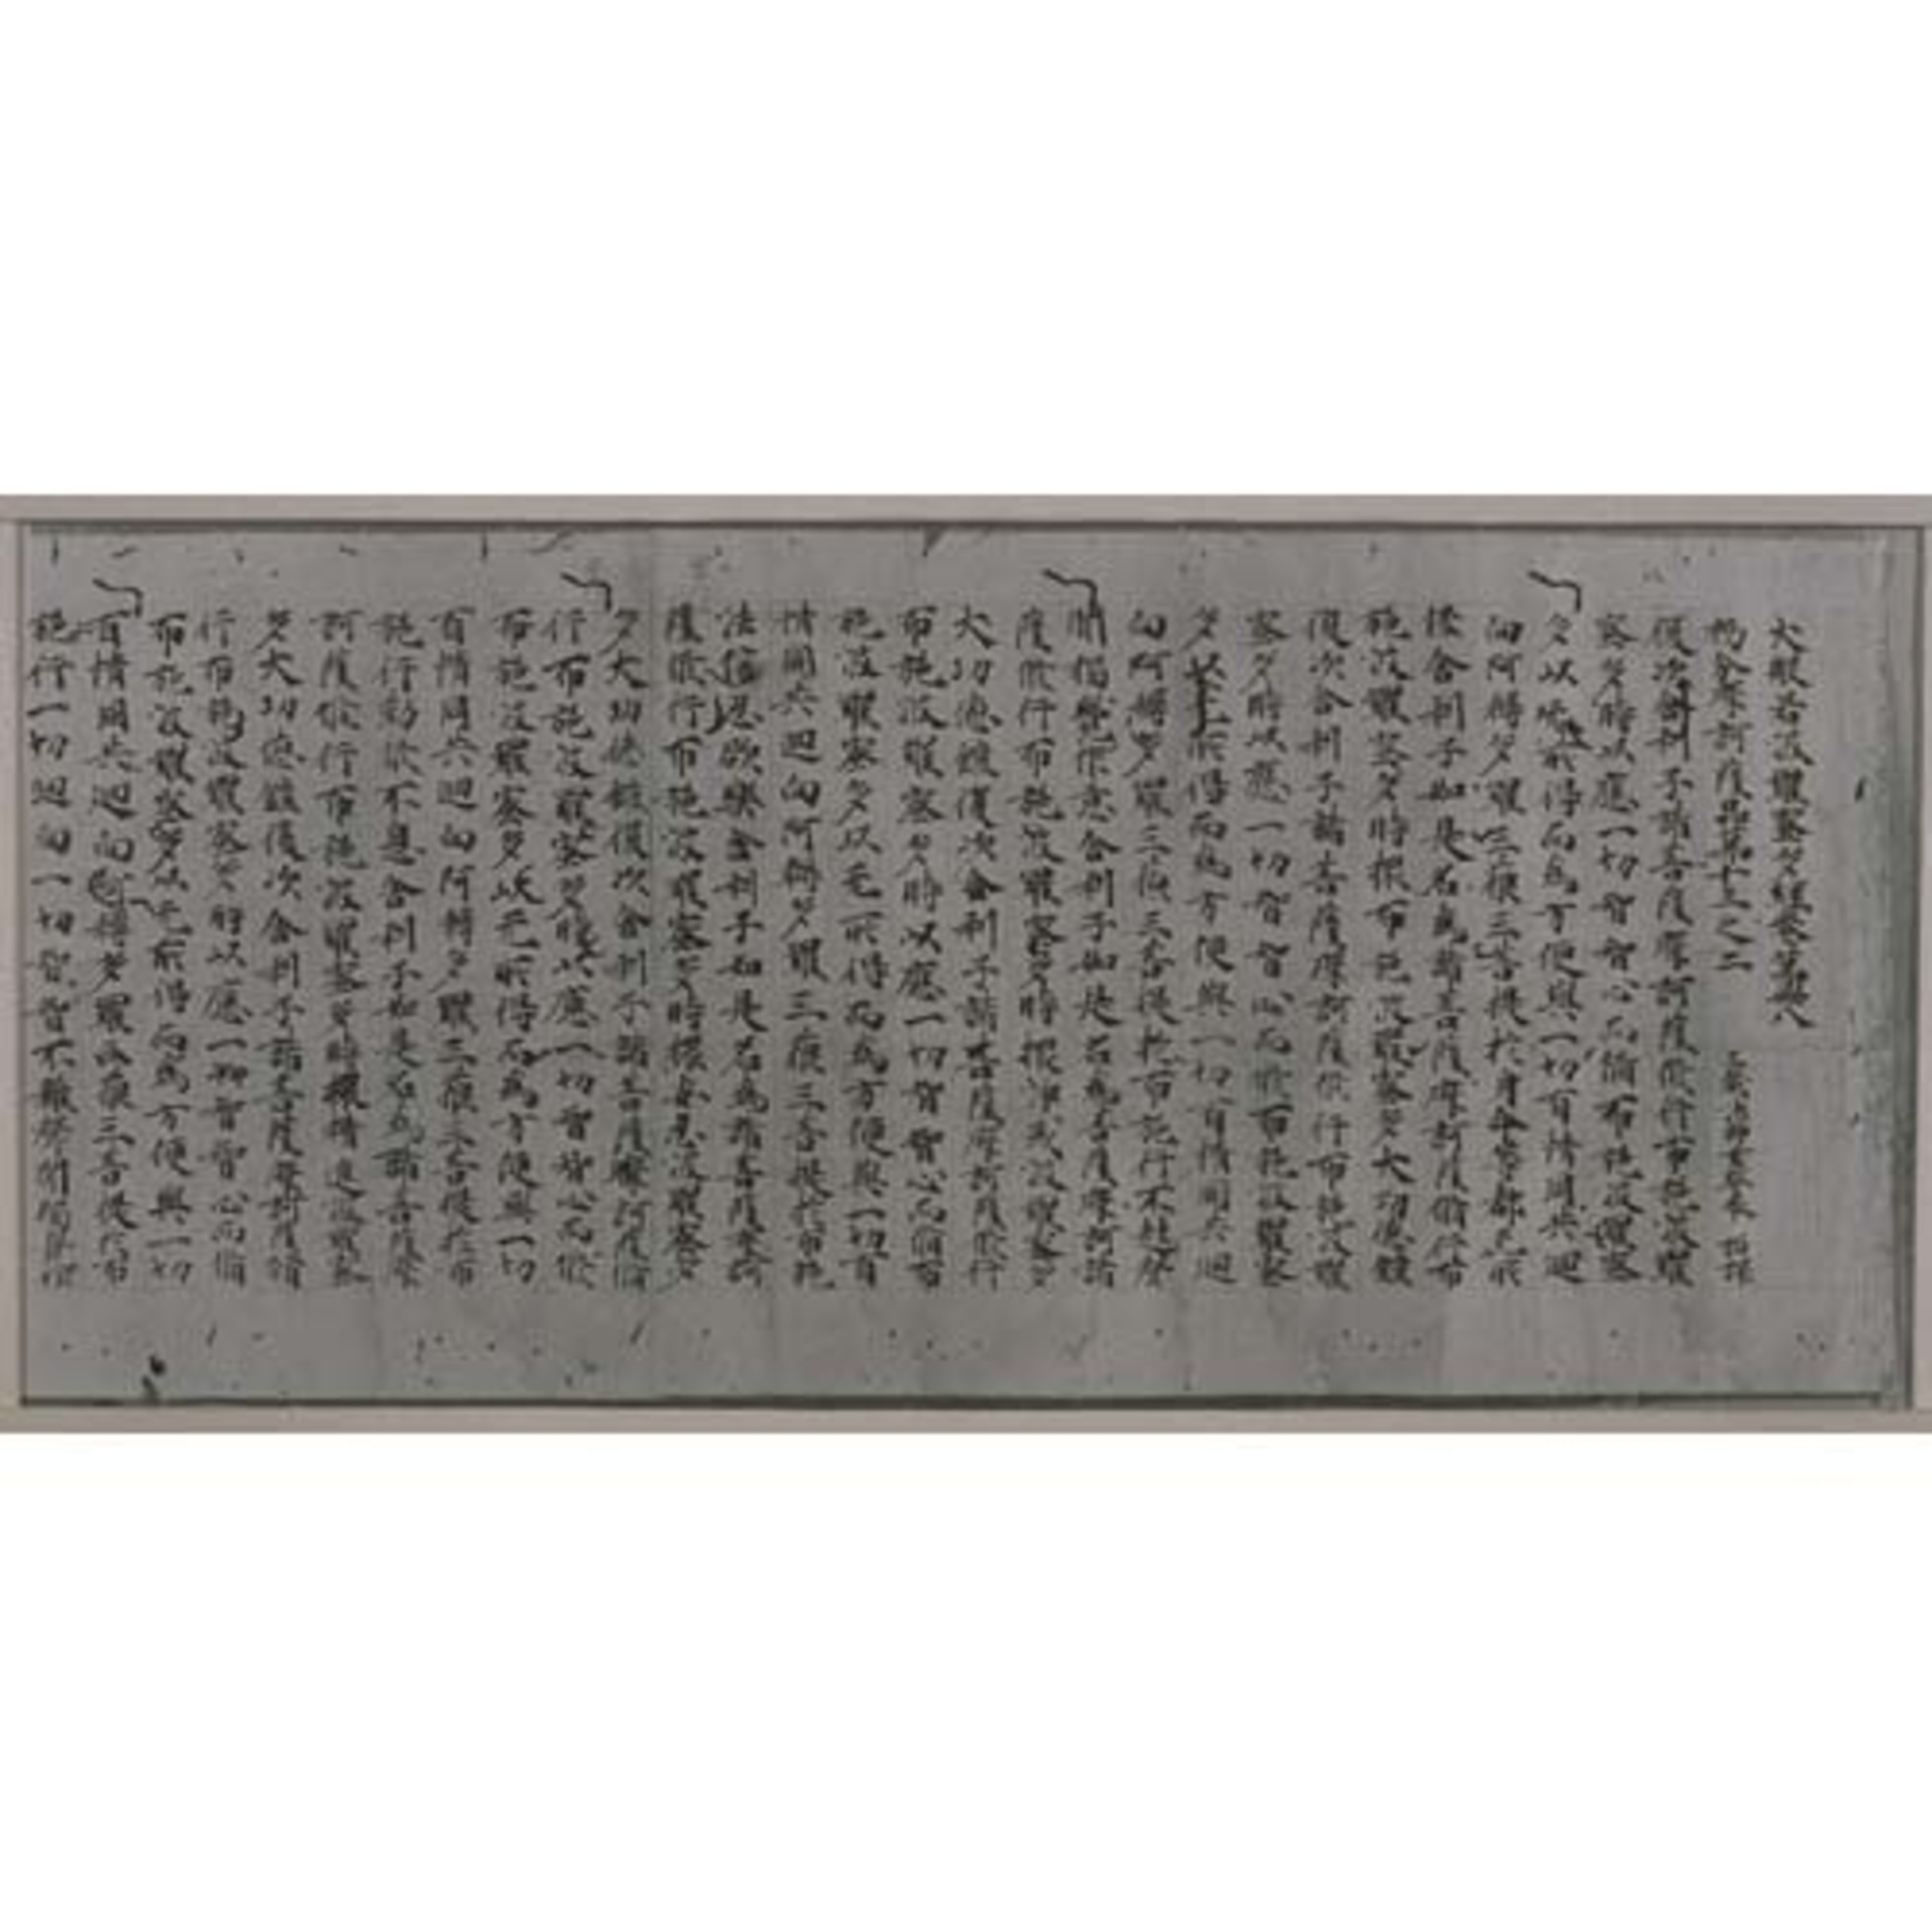 大般若波羅蜜多經卷第卌八
初分摩訶薩品第十三之二 三藏法師玄奘奉 詔譯
復次舍利子諸菩薩摩訶薩修行布施波羅
蜜多時以應一切智智心而修布施波羅蜜
多以无所得而為方便與一切有情同共迴
向阿耨多羅三藐三菩提於身命等都无所
悋舍利子如是名為諸菩薩摩訶薩修行布
施波羅蜜多時擐布施波羅蜜多大功德鎧
復次舍利子諸菩薩摩訶薩修行布施波羅
蜜多時以應一切智智心而修布施波羅蜜
多以无所得而為方便與一切有情同共迴
向阿耨多羅三藐三菩提於布施行不起聲
聞獨覺作意舍利子如是名為菩薩摩訶諸
薩修行布施波羅蜜多時擐淨戒波羅蜜多
大功德鎧復次舍利子諸菩薩摩訶薩修行
布施波羅蜜多時以應一切智智心而修布
施波羅蜜多以无所得而為方便與一切有
情同共迴向阿耨多羅三藐三菩提於布施
法信忍欲樂舍利子如是名為諸菩薩摩訶
薩修行布施波羅蜜多時擐安忍波羅蜜
多大功德鎧復次舍利子諸菩薩摩訶薩修
行布施波羅蜜多時以應一切智智心而修
布施波羅蜜多以无所得而為方便與一切
有情同共迴向阿耨多羅三藐三菩提於布
施行勤修不息舍利子如是名為諸菩薩摩
訶薩修行布施波羅蜜多時擐精進波羅蜜
多大功德鎧復次舍利子諸菩薩摩訶薩修
行布施波羅蜜多時以應一切智智心而修
布施波羅蜜多以无所得而為方便與一切
有情同共迴向阿耨多羅三藐三菩提於布
施行一切迴向一切智智不雜聲聞獨覺作